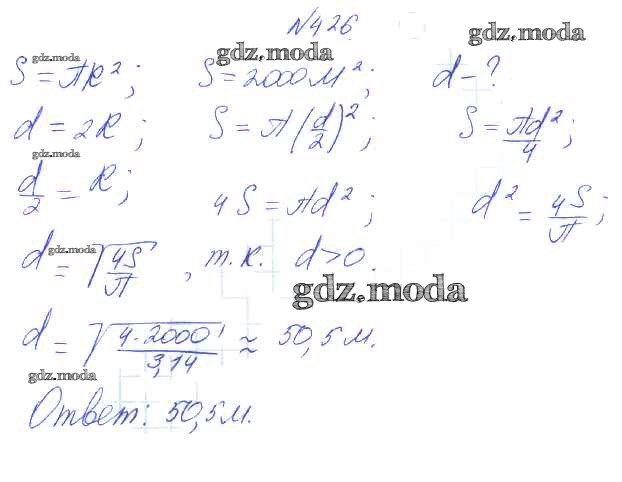 №426
gdz.moda
gdz.moda
gdz.moda
S = πR²; S = 2000 м²; d - ?
d = 2R; S = π(d/2)²; S = πd²/4;
gdz.moda
d/2 = R; 4S = πd²; d² = 4S/π;
gdz.moda
d = √(4S/π), т.к. d>0.
gdz.moda
d = √(4·2000/3,14) ≈ 50,5 м.
gdz.moda
Ответ: 50,5 м.